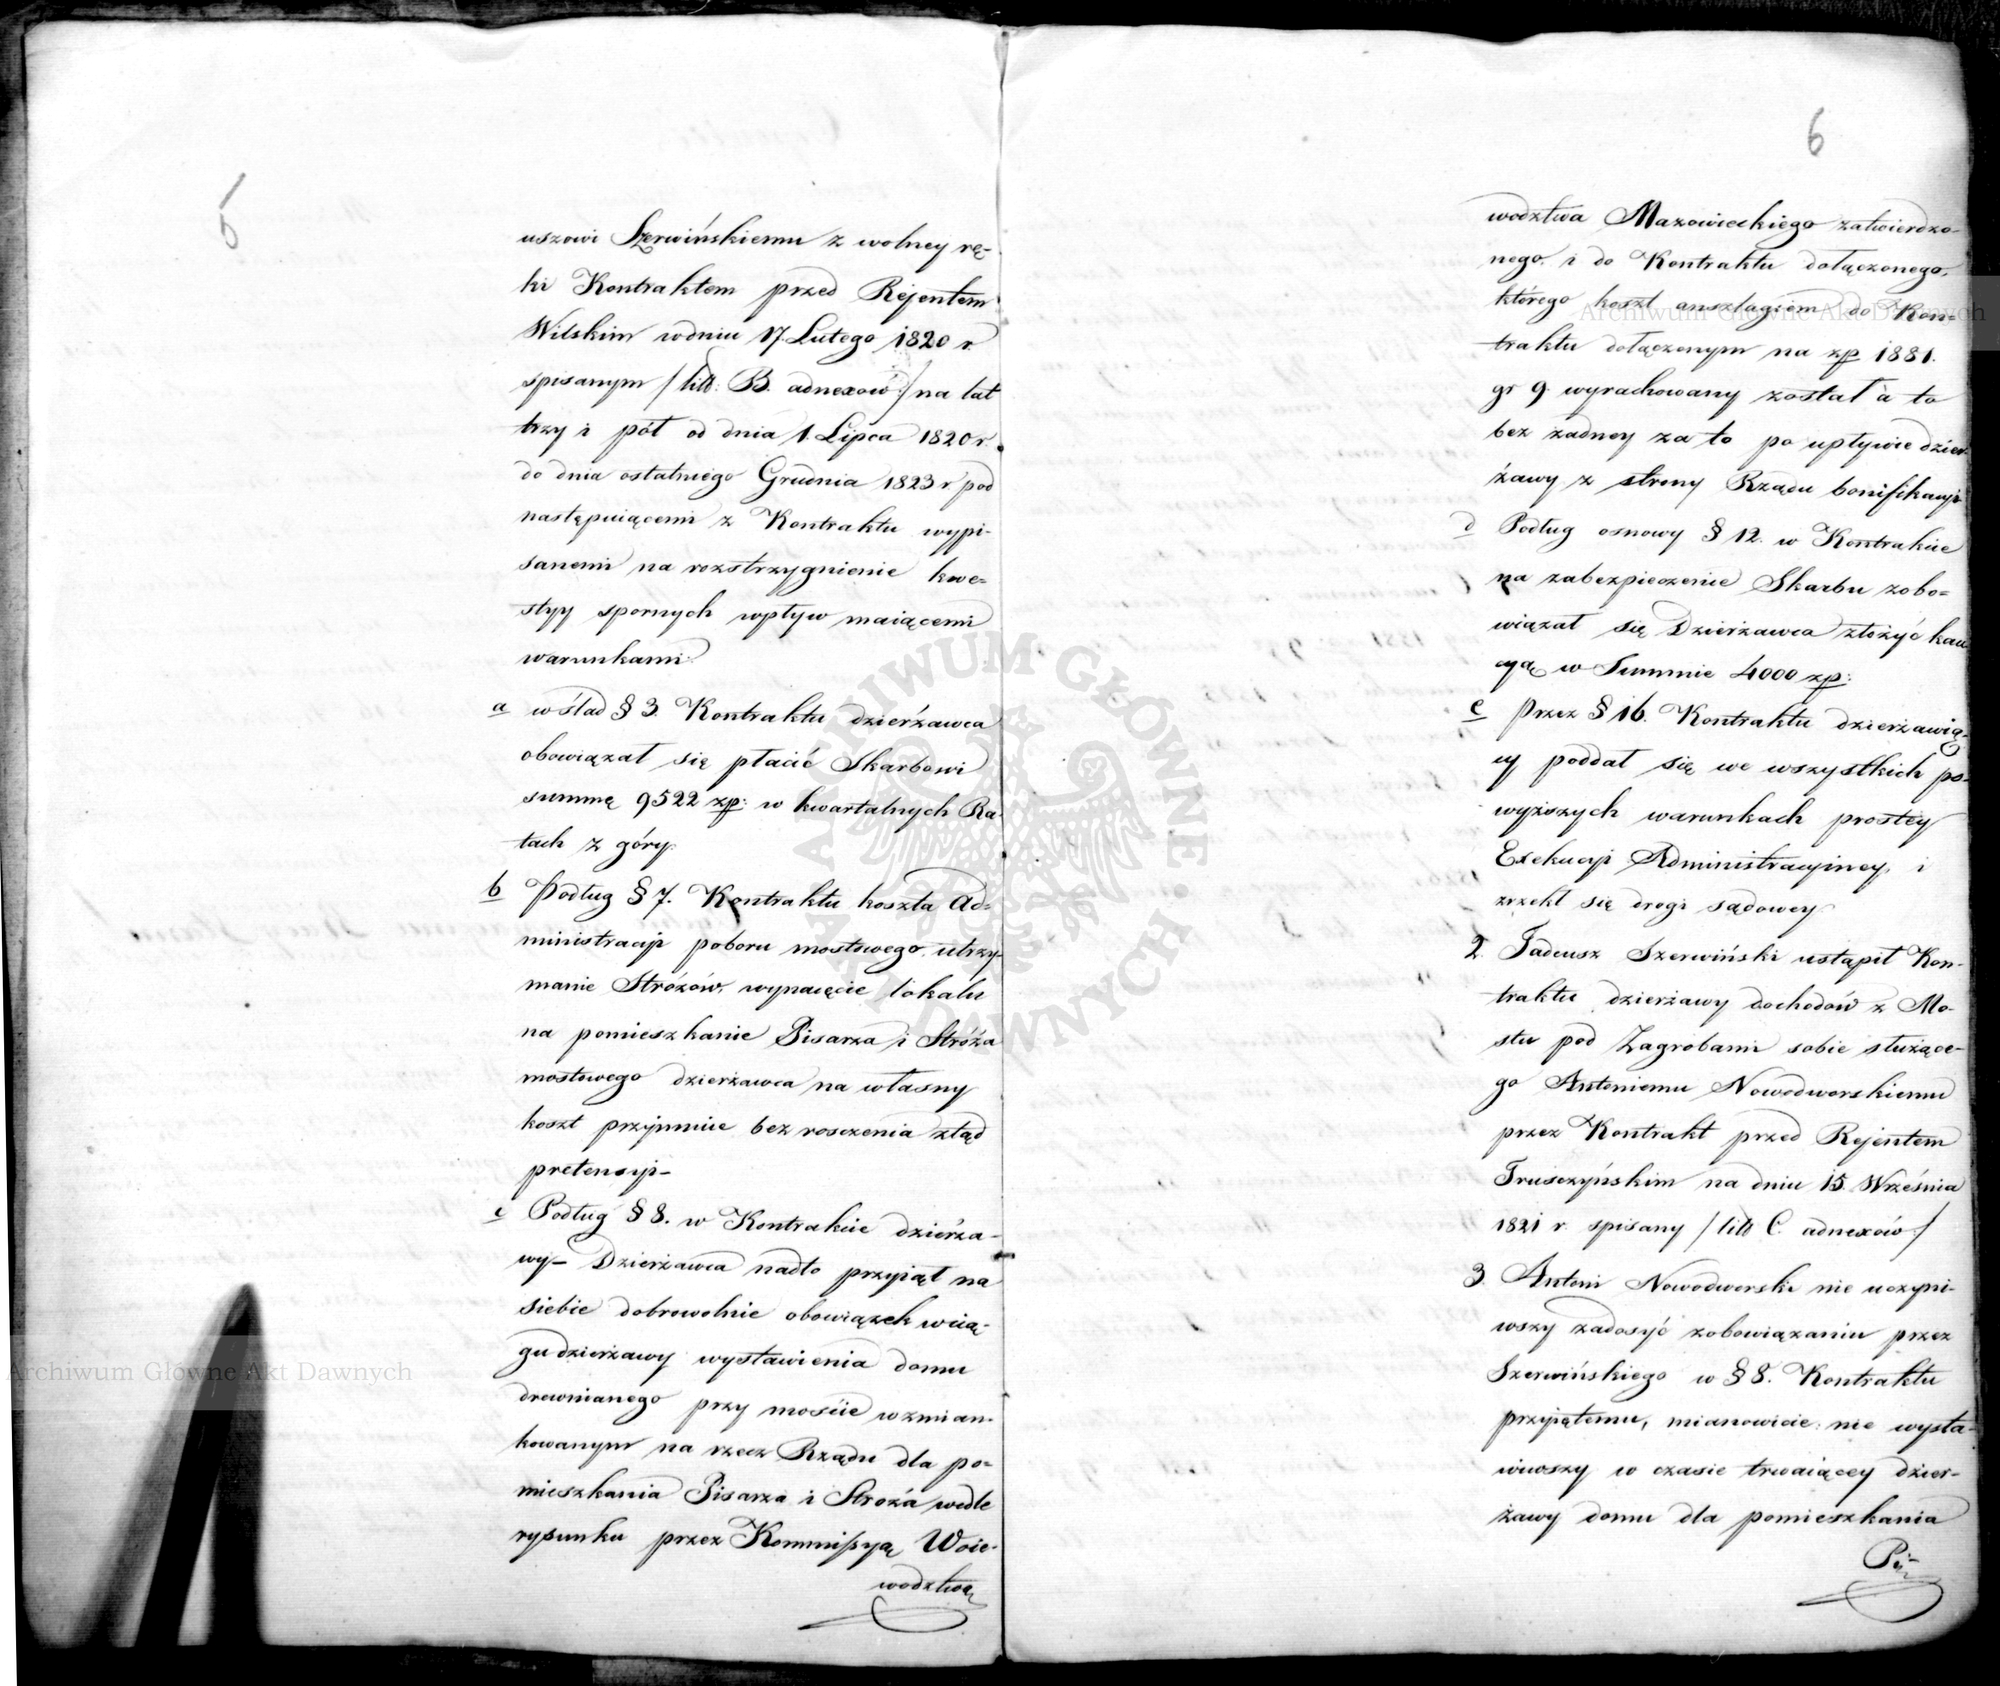 5
uszowi Szerwińskiemu z wolney rę-
ki Kontraktem przed Rejentem
Wilskim wdniu 17. Lutego 1820 r.
spisanym /: litt: B. adnexów :/ na lat
trzy i pół od dnia 1. Lipca 1820 r.
do dnia ostatniego Grudnia 1823 r pod
następuiącemi z Kontraktu wypi-
sanemi na rozstrzygnienie kwe-
styy spornych wpływ maiącemi
warunkami:
a wślad § 3. Kontraktu dzierżawca
obowiązał się płacić Skarbowi
summę 9522 zp: w kwartalnych Ra-
tach z góry.
b Podług § 7. Kontraktu koszta Ad-
ministracyi poboru mostowego, utrzy-
manie Stróżów, wynaięcie lokalu
na pomieszkanie Pisarza i Stróża
mostowego dzierżawca na własny
koszt przyimuie bez rosczenia ztąd
pretensyi-
c Podług § 8. w Kontrakcie dzierża-
wy- Dzierżawca nadto przyiął na
siebie dobrowolnie obowiązek wcią-
gu dzierżawy wystawienia domu
drewnianego przy moście wzmian-
kowanym na rzecz Rządu dla po-
mieszkania Pisarza i Stroża wedle
rysunku przez Kommissyą Woie-
wodztwa
6
wodztwa Mazowieckiego zatwierdzo-
nego i do Kontraktu dołączonego,
którego koszt anszlagiem do Kon-
traktu dołączonym na zp 1881.
gr 9. wyrachowany został a to
bez żadney za to po upływie dzier-
żawy z strony Rządu bonifikacyi
d Podług osnowy § 12. w Kontrakcie
na zabezpieczenie Skarbu zobo-
wiązał się Dzierżawca złożyć kau-
cyą w Summie 4000 zp:
e Przez § 16. Kontraktu dzierżawią-
cy poddał się we wszystkich po-
wyższych warunkach prostey
Exekucyi Administracyiney, i
zrzekł się drogi sądowey.
2. Tadeusz Szerwiński ustąpił Kon-
traktu dzierżawy dochodów z Mo-
stu pod Zagrobami sobie służące-
go Antoniemu Nowodworskiemu
przez Kontrakt przed Rejentem
Trusczyńskim na dniu 15. Września
1821 r. spisany /: litt C. adnexów :/
3. Antoni Nowodworski nie uczyni-
wszy zadosyć zobowiązaniu przez
Szerwińskiego w § 8. Kontraktu
przyiętemu, mianowicie: nie wysta-
wiwszy w czasie trwaiącey dzier-
żawy domu dla pomieszkania
Pi-
ARCHIWUM GŁÓWNE AKT DAWNYCH
Archiwum Główne Akt Dawnych
Archiwum Główne Akt Dawnych